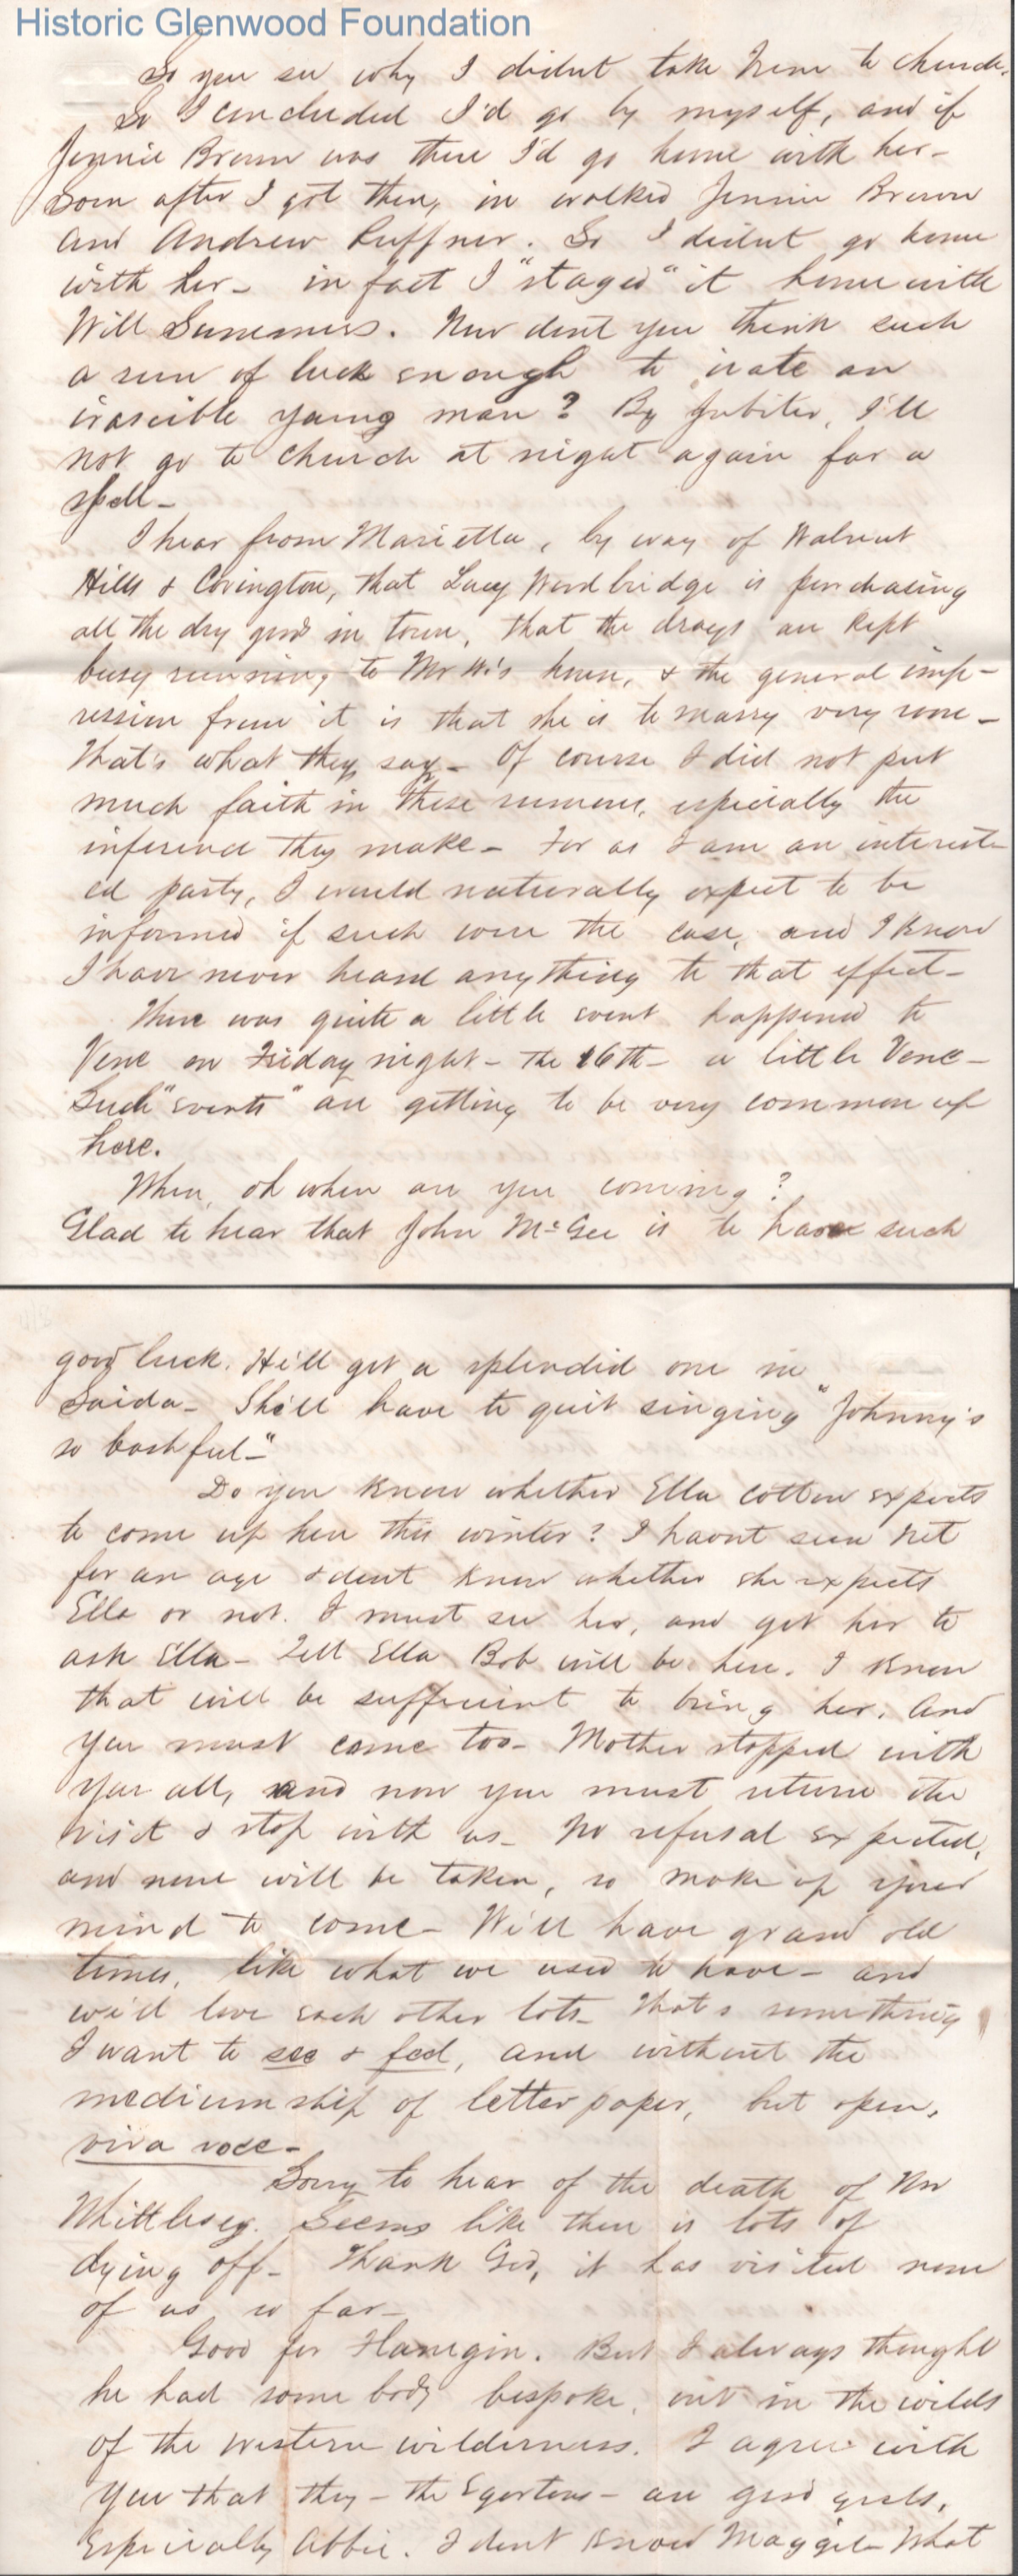 Historic Glenwood Foundation
So you see why I didnt take Irene to church.
So I concluded I'd go by myself, and if
Jennie Brown was there I'd go home with her-
Soon after I got there, in walked Jennie Brown
and Andrew Ruffner. So I didnt go home
with her- in fact I "staged" it home with
Will Summers. Now dont you think such
a run of luck enough to irate an
irascible young man? By Jubiter, I'll
not go to church at night again for a
spell-
I hear from Marietta, by way of Walnut
Hills & Covington, that Lucy Woodbridge is purchasing
all the dry goods in town, that the drays are kept
busy running to Mr W's house, & the general imp-
ression from it is that she is to marry very soon-
That's what they say- Of course I did not put
much faith in these rumors, especially the
inference they make- For as I am an interest-
ed party, I would naturally expect to be
informed if such were the case, and I know
I have never heard anything to that effect-
There was quite a little event happened to
Vene on Friday night- the 16th- a little Vene-
Such "events" are getting to be very common up
here.
When, oh when are you coming?
Glad to hear that John McGee is to have such
good luck. He'll get a splendid one in
Saida- She'll have to quit singing "Johnny's
so bashful-"
Do you know whether Ella Cotton expects
to come up here this winter? I havnt seen Net
for an age & dont know whether she expects
Ella or not. I must see her, and get her to
ask Ella- Tell Ella Bob will be here. I know
that will be sufficient to bring her. And
you must come too- Mother stopped with
you all, and now you must return the
visit & stop with us- No refusal expected,
and none will be taken, so make up your
mind to come- We'll have grand old
times, like what we used to have- and
we'd love each other lots- That's something
I want to see & feel, and without the
mediumship of letter paper, but open,
viva voce-
Sorry to hear of the death of Mr
Whittlesey. Seems like there is lots of
dying off- Thank God, it has visited none
of us so far-
Good for Flanegin. But I always thought
he had some body bespoke, out in the wilds
of the western wilderness. I agree with
you that they- the Egertons- are good girls,
Especially Abbie. I dont know Maggie- What